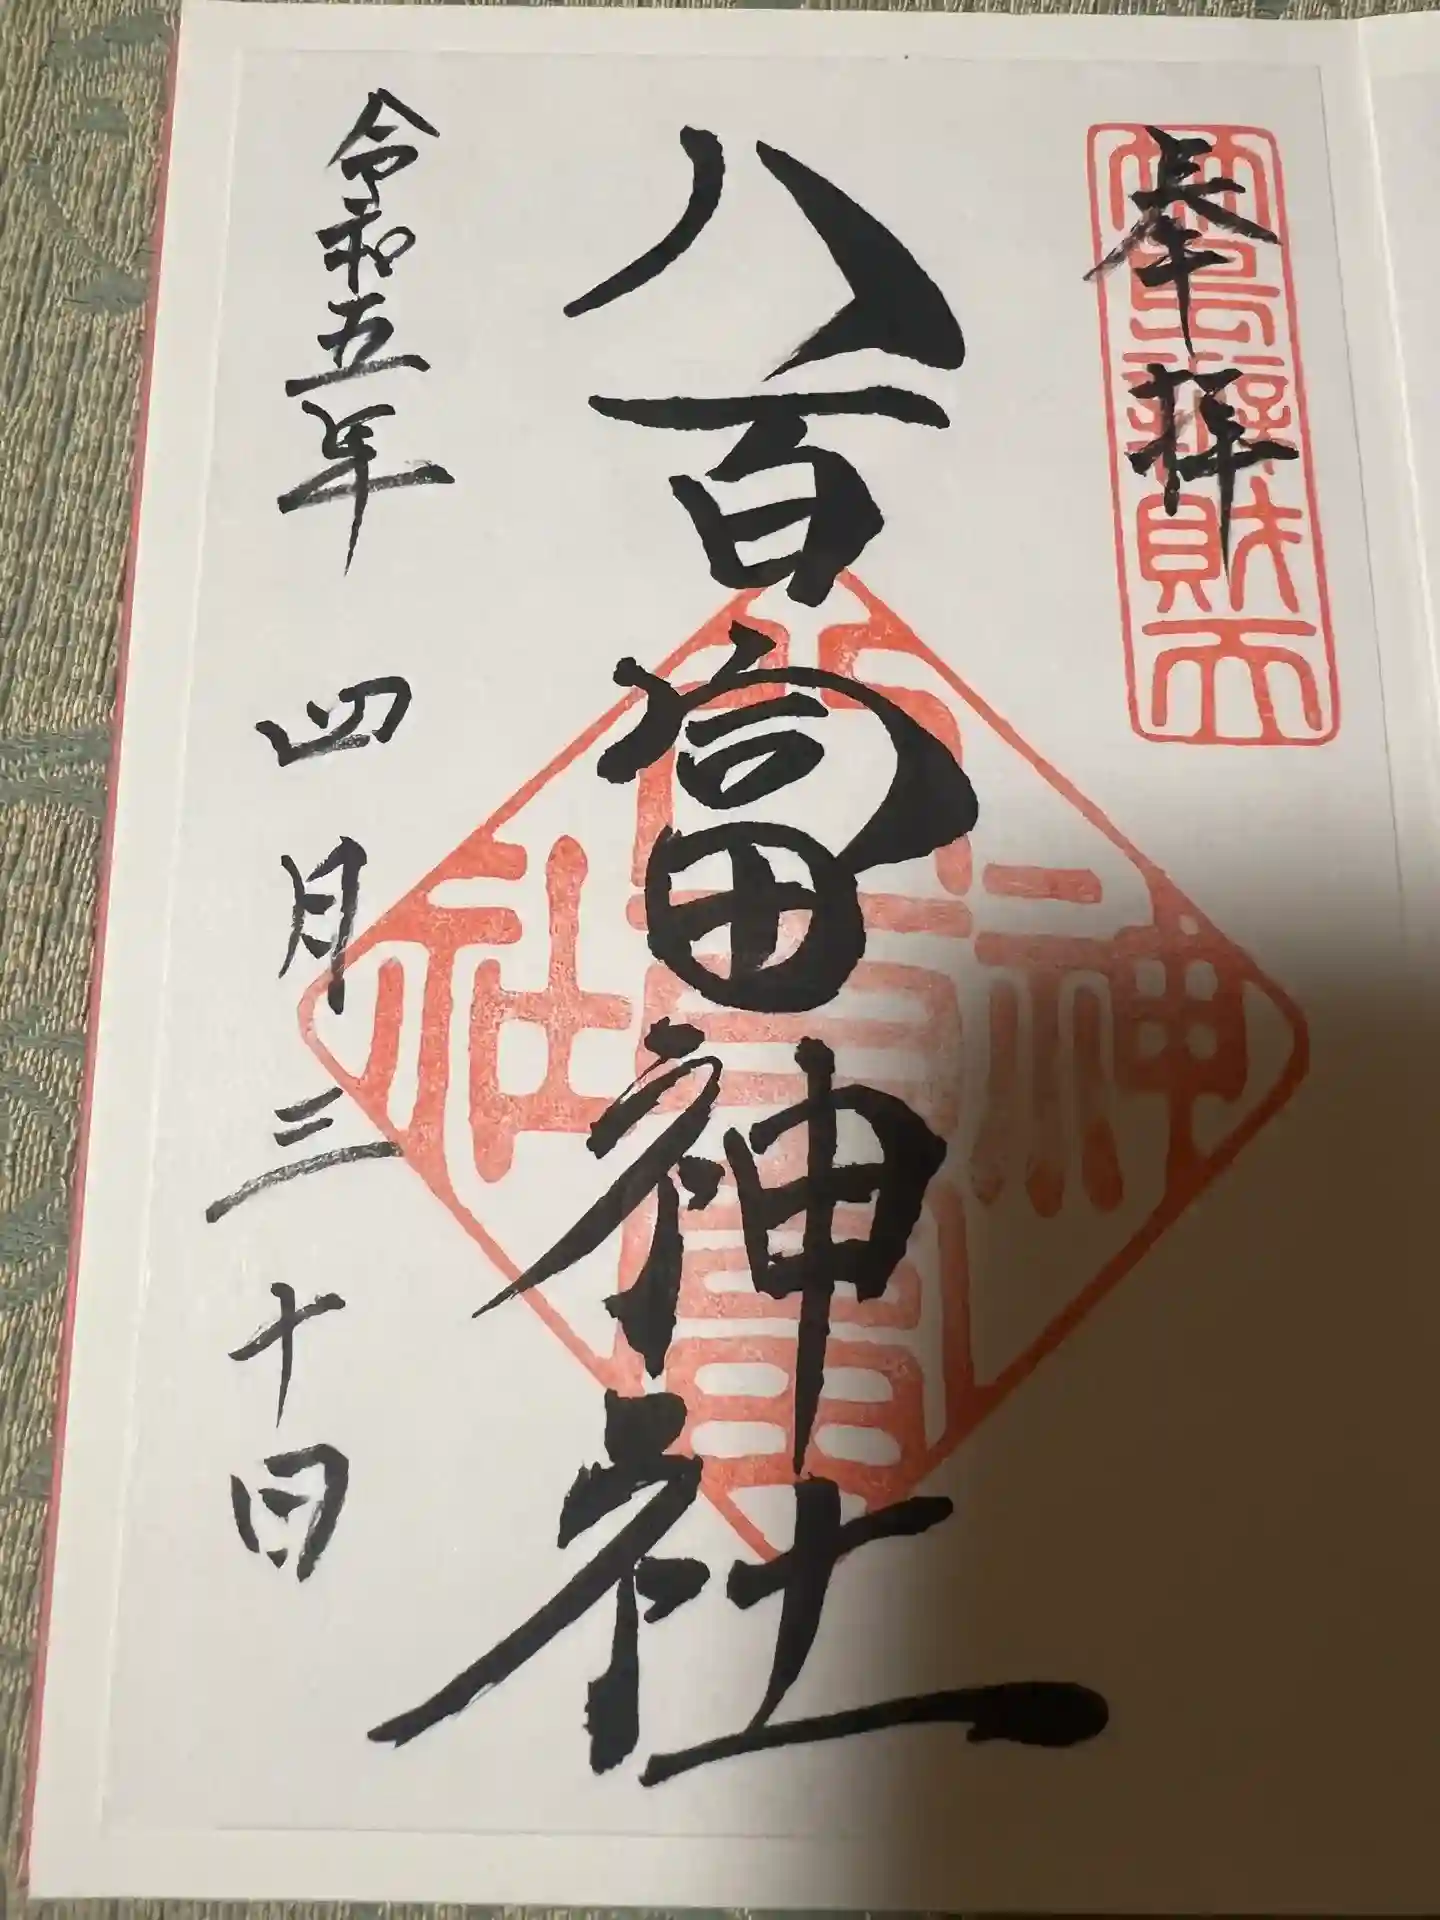 奉拝
竹島辨財天
八百富神社
八百富
神社
令和五年四月三十日